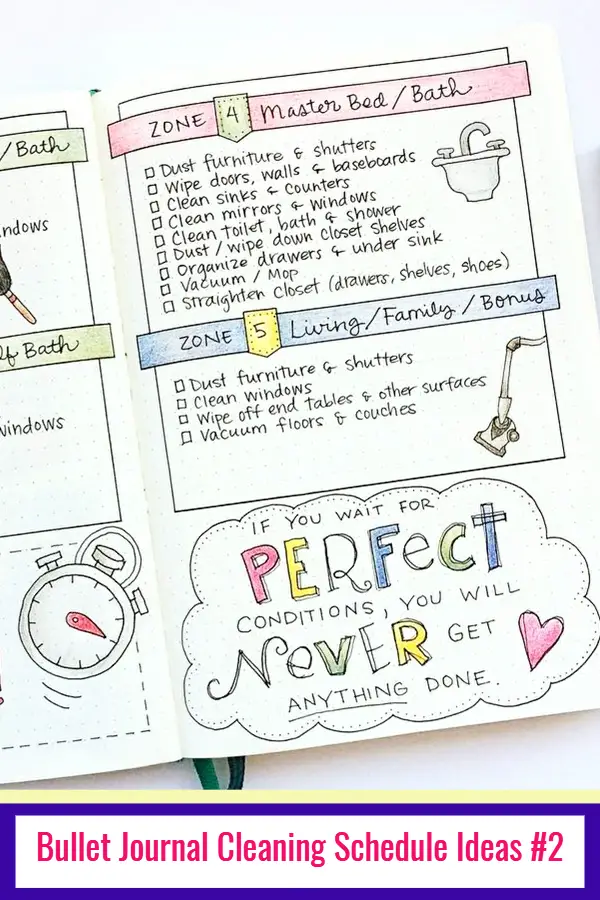 /Bath
indows
lf Bath
windows
ZONE 4 Master Bed / Bath
Dust furniture & shutters
Wipe doors, walls & baseboards
Clean sinks & counters
Clean mirrors & windows
Clean toilet, bath & shower
Dust / wipe down closet shelves
Organize drawers & under sink
Vacuum / Mop
Straighten closet (drawers, shelves, shoes)
ZONE 5 Living / Family / Bonus
Dust furniture & shutters
Clean windows
Wipe off end tables & other surfaces
Vacuum floors & couches
IF YOU WAIT FOR
PERFecT
CONDITIONS, YOU WILL
NeVER GET
ANYTHING DONE.
Bullet Journal Cleaning Schedule Ideas #2